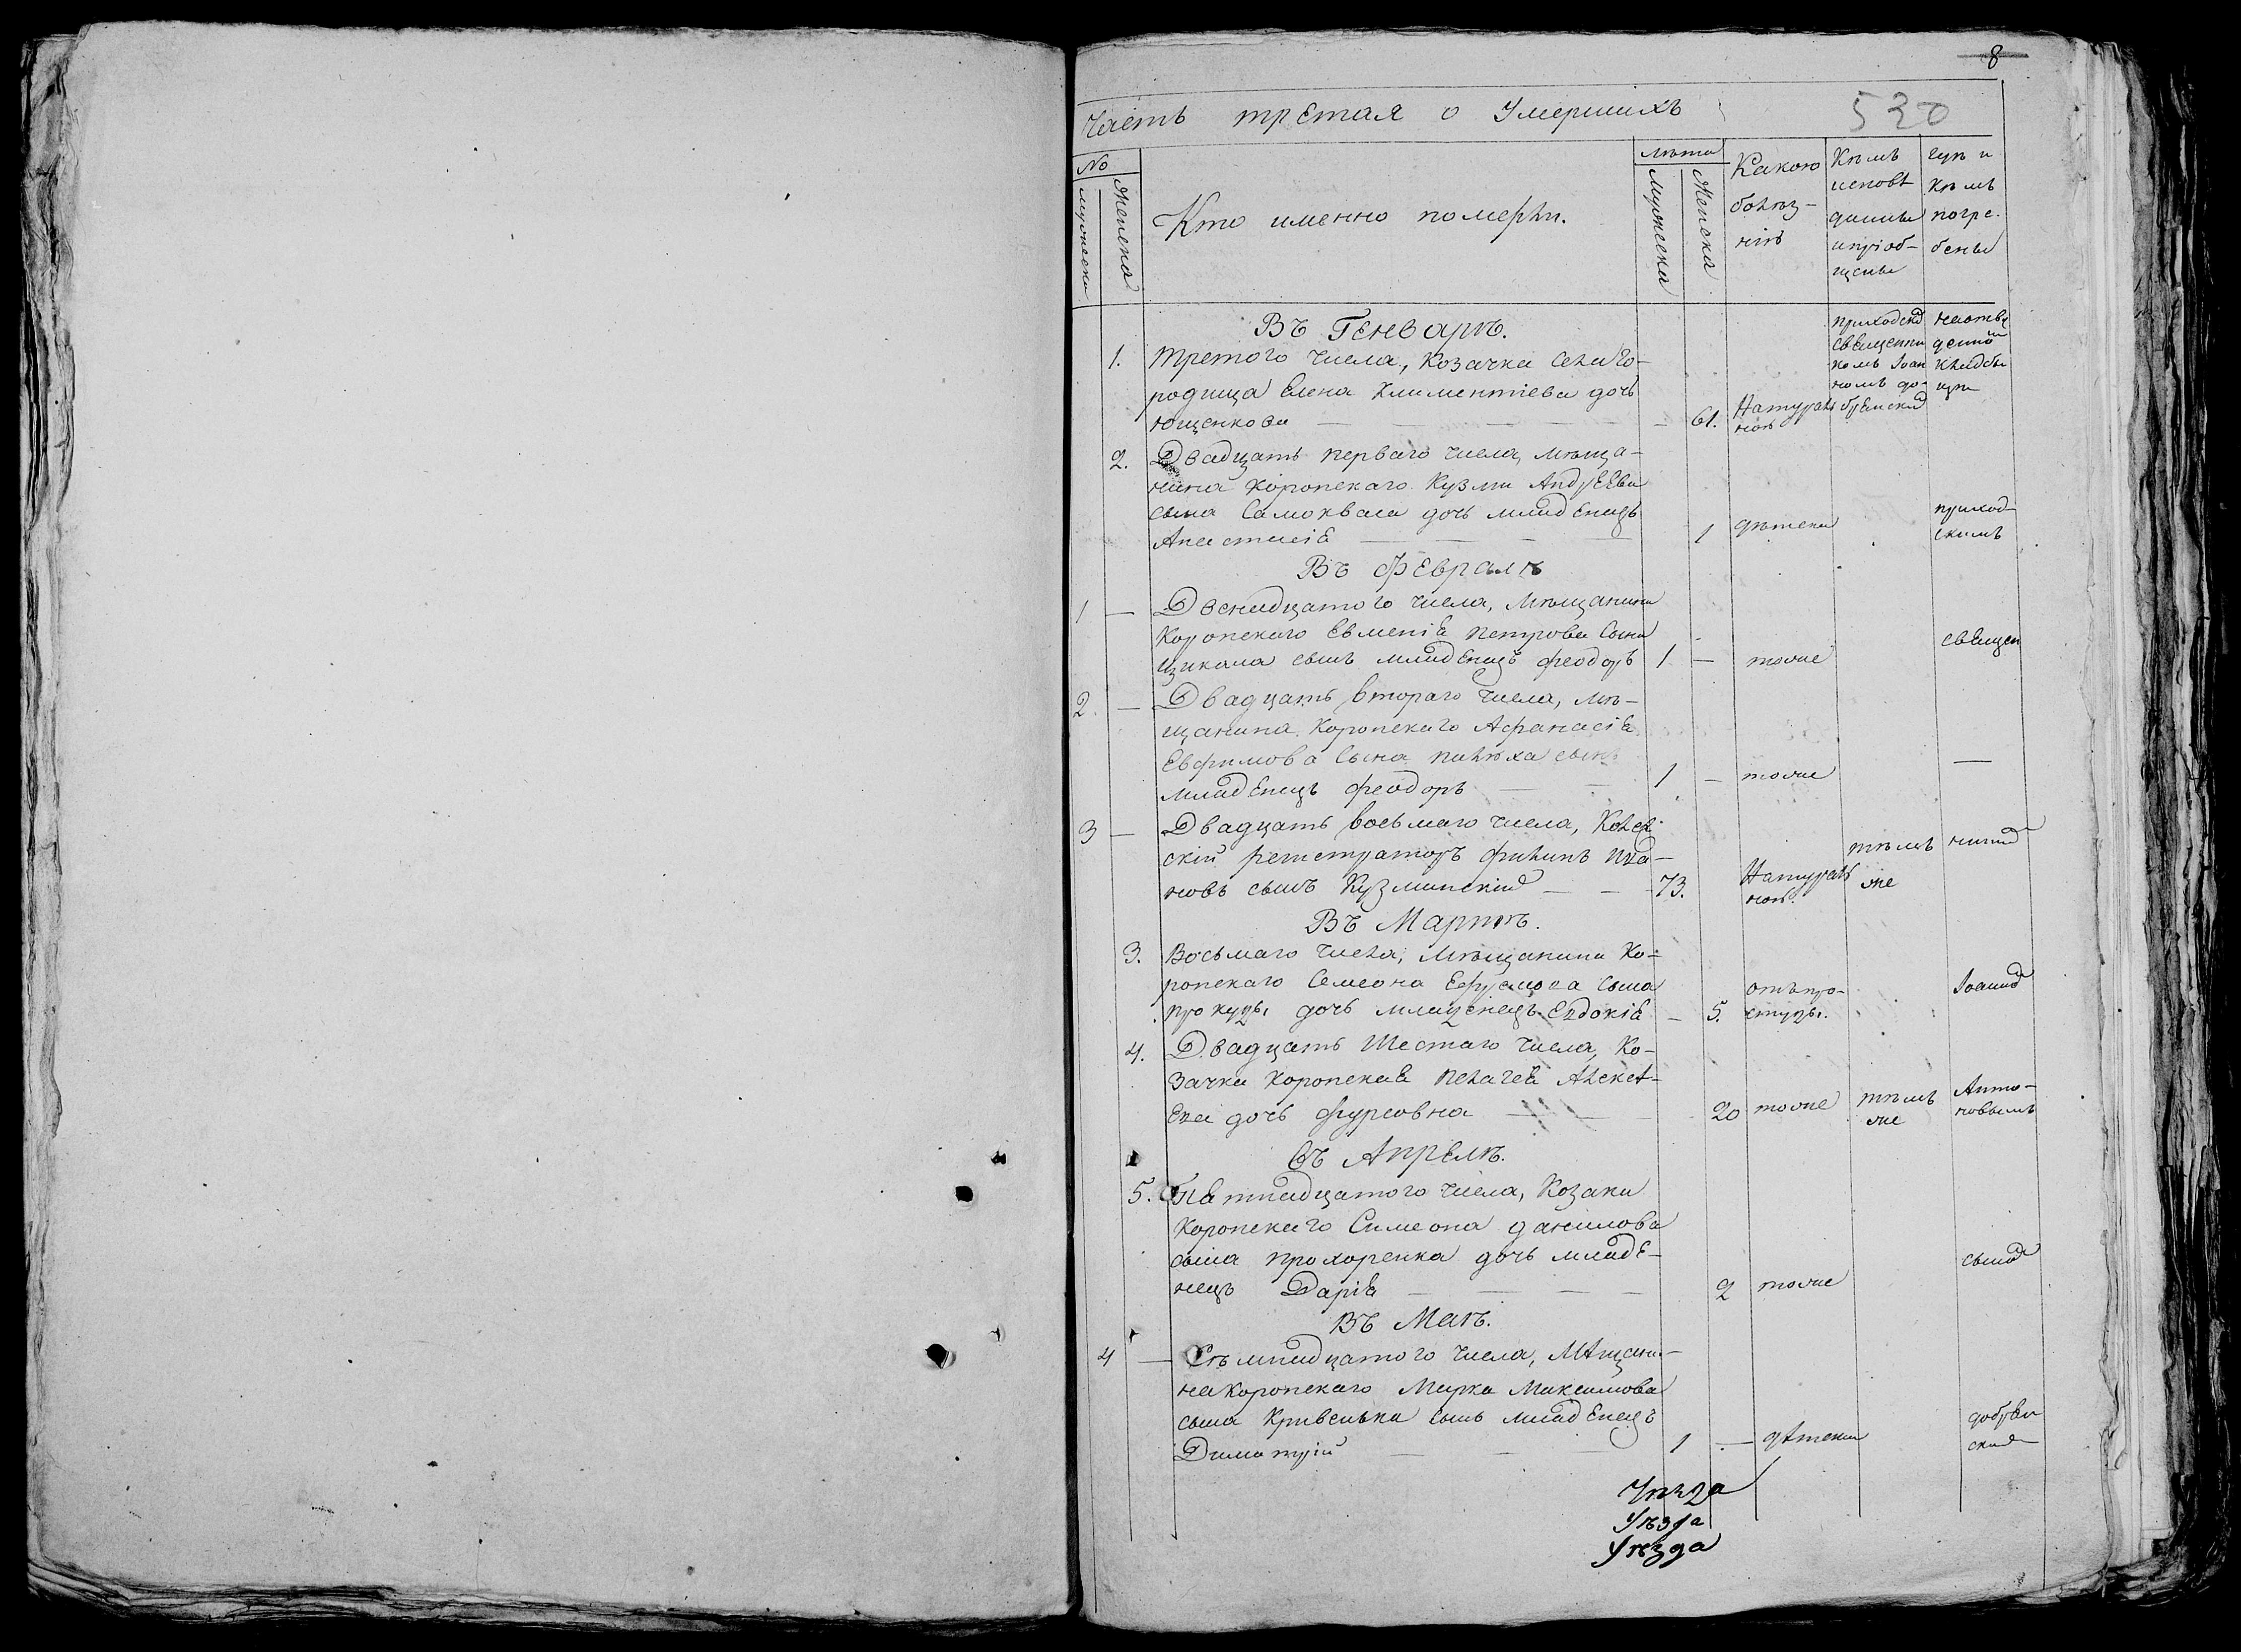 8
Часть третая о Умершихъ
530
№
Мужеска
Женска
Кто именно померли.
лѣта
Мужеска
Женска
Какою
болѣз-
нію
Кѣмъ
исповѣ
даны
и пріоб-
щены
гдѣ и
кѣмъ
погре-
бены
Въ Генварѣ.
1. Третого числа, Козачка села Го-
родища Елена Климентіева дочь
Ющенкова — 61. Натураль
ною
приходскӣ
священни
комъ Іоан
номъ до-
брянскӣ
на отве
денномъ
кладби
щѣ
2. Двадцать перваго числа, мѣща-
нина Коропскаго Кузми Андрѣева
сына Самокваса дочь младенецъ
Анастасіѧ 1 дѣтска приход-
скимъ
Въ Февралѣ
1 — Двенадцатого числа, Мѣщанина
Коропскаго Евменіѧ Петрова сына
Цикала сынъ младенецъ Феодоръ 1 — тоже священ
2. — Двадцать втораго числа, мѣ-
щанина Коропскаго Афанасіѧ
Евфимова сына Пилѣха сынъ
младенецъ Феодоръ 1 — тоже —
3 — Двадцать восьмаго числа, Колеж
скій регистраторъ Филипъ Ива-
новъ сынъ Кузминскій — 73. Натураль
ною. тѣмъ
же
Въ Мартѣ.
3. Восьмаго числа, Мѣщанина Ко-
ропскаго Семеона Ефремова сына
Прокуды дочь младенецъ Евдокіѧ — 5. отъ про-
студы. Іоанно
4. Двадцать Шестаго числа, Ко-
зачка Коропскаѧ Пелагеѧ Алексѣ-
ева дочь Фурсовна 20 тоже тѣмъ
же Анто-
новымъ
Въ Апрелѣ.
5. Пѧтнадцатого числа, Козака
Коропскаго Симеона Данилова
сына Прохоренка дочь младе-
нецъ Даріѧ 2 тоже
Въ Маѣ.
4 — Семнадцатого числа, Мѣщани-
на Коропскаго Марка Максимова
сына Кривенька сынъ младенецъ
Димитрій 1 — дѣтска добрян
ски
Уѣзда
Уѣзда
Уѣзда